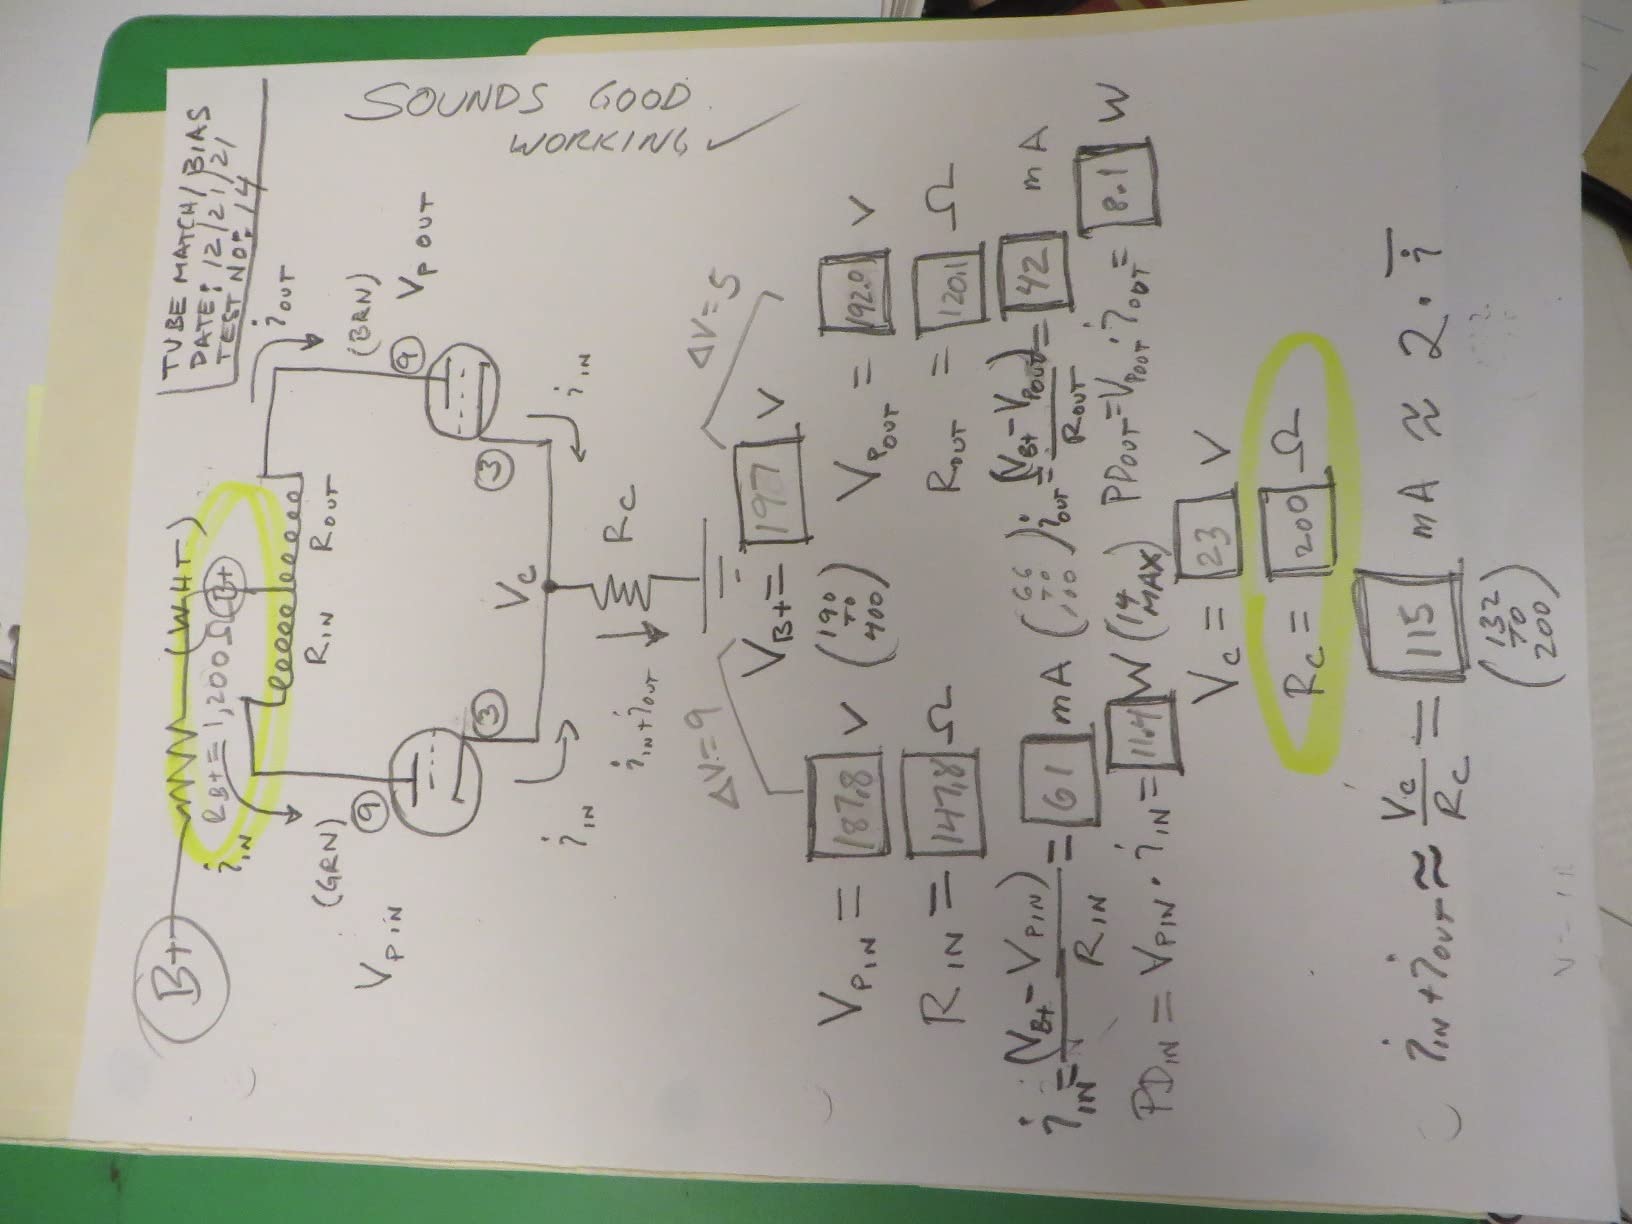 TUBE MATCH / BIAS
DATE: 12/21/21
TEST NO: 14
SOUNDS GOOD
WORKING ✓
B+
(WHT)
RB+ = 1,200Ω
B+
iIN
iOUT
RIN
ROUT
(GRN)
(BRN)
9
9
VPIN
VPOUT
3
3
VC
iIN
iIN
iIN+iOUT
RC
ΔV=9
ΔV=5
VB+ = 197 V
(190 TO 400)
VPIN = 187.8 V
VPOUT = 192.0 V
RIN = 147.8 Ω
ROUT = 120.1 Ω
iIN = (VB+ - VPIN) / RIN = 61 mA (66 TO 100);
iOUT = (VB+ - VPOUT) / ROUT = 42 mA
PDIN = VPIN · iIN = 11.4 W (14 MAX)
PDOUT = VPOUT · iOUT = 8.1 W
VC = 23 V
RC = 200 Ω
iIN + iOUT ≈ VC / RC = 115 mA ≈ 2 · i̅
(132 TO 200)